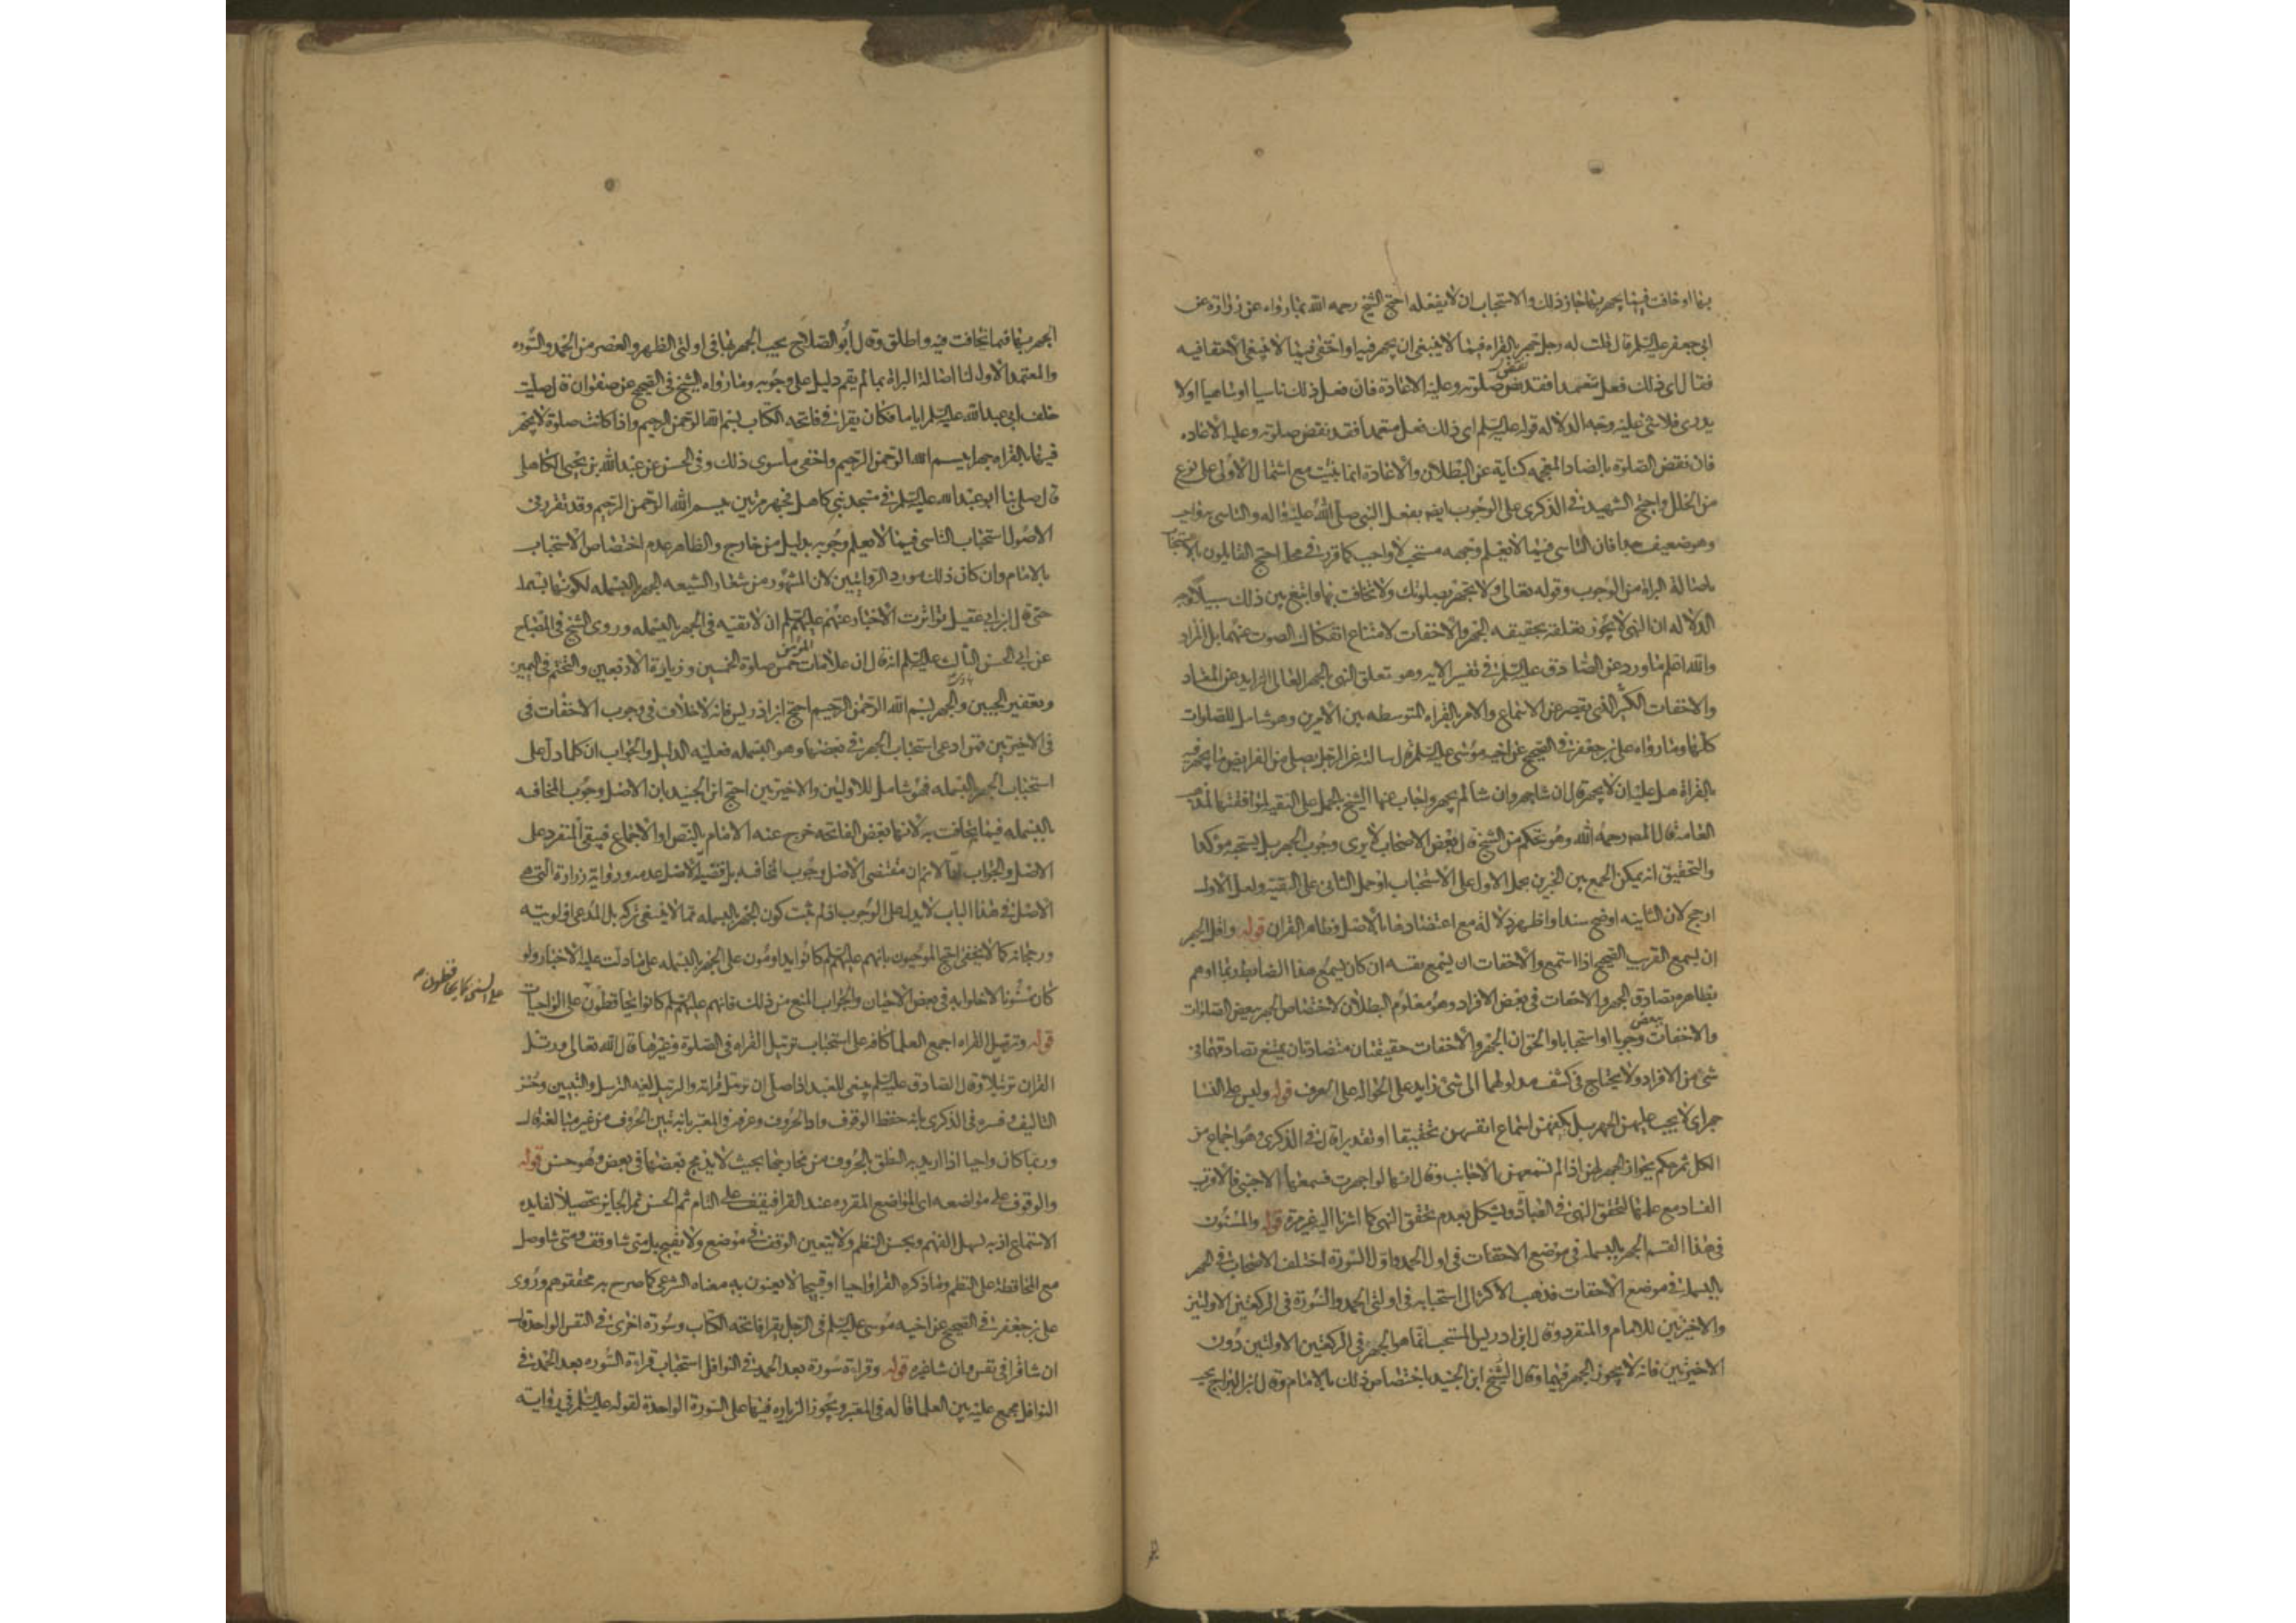 بها او خافت فيما يجهر بها جاز ذلك والاستحباب ان لا يفعله احتج الشيخ رحمه الله بما رواه عن زرارة عن
ابي جعفر عليه السلم قال قلت له رجل جهر بالقراه فيما لا ينبغي ان يجهر فيه او اخفى فيما لا ينبغي الاخفا فيه
فقال اى ذلك فعل متعمدا فقد نقض صلوته وعليه الاعادة فان فعل ذلك ناسيا او ساهيا او لا
يدرى فلا شئ عليه وجه الدلاله قوله عليه السلم اى ذلك فعل متعمدا فقد نقض صلوته وعليه الاعاده
فان نقض الصلوة بالضاد المعجمه كناية عن البطلان والاعادة انما تثبت مع اشتمال الاولى على نوع
من الخلل واحتج الشهيد فى الذكرى على الوجوب ايضا بفعل النبى صلى الله عليه واله والتاسى به واجب
وهو ضعيف جدا فان التاسى فيما لا يعلم وجهه مستحب لا واجب كما قرر فى محله احتج القايلون بالاستحباب
باصالة البراة من الوجوب وقوله تعالى ولا تجهر بصلوتك ولا تخافت بها وابتغ بين ذلك سبيلا وجه
الدلاله ان النهى لا يجوز تعلقه بحقيقه الجهر والاخفات لامتناع انفكاك الصوت عنهما بل المراد
والله اعلم ما ورد عن الصادق عليه السلم فى تفسير الايه وهو تعلق النهى بالجهر العالى الزايد عن المعتاد
والاخفات الكثير الذى يقصر عن الاسماع والامر بالقراه المتوسطه بين الامرين وهو شامل للصلوات
كلها وما رواه على بن جعفر فى الصحيح عن اخيه موسى عليه السلم قال سالته عن الرجل يصلى من الفرايض ما يجهر فيه
بالقراة هل عليه ان لا يجهر قال ان شا جهر وان شا لم يجهر واجاب عنها الشيخ بالحمل على التقيه لموافقتها لمذهب
العامه قال المص رحمه الله وهو تحكم من الشيخ فان بعض الاصحاب لا يرى وجوب الجهر بل يستحبه مؤكدا
والتحقيق انه يمكن الجمع بين الخبرين بحمل الاول على الاستحباب او حمل الثانى على التقيه ولعل الاول
ارجح لان الثانيه اوضح سندا واظهر دلالة مع اعتضادها بالاصل وظاهر القران قوله واقل الجهر
ان يسمع القريب الصحيح اذا استمع والاخفات ان يسمع نفسه ان كان يسمع هذا الضابط ربما اوهم
بظاهره تصادق الجهر والاخفات فى بعض الافراد وهو معلوم البطلان لاختصاص الجهر ببعض الصلوات
والاخفات ببعض وجوبا او استحبابا والحق ان الجهر والاخفات حقيقتان متضادتان يمتنع تصادقهما فى
شئ من الافراد ولا يحتاج فى كشف مدلولهما الى شئ زايد على الحواله على العرف قوله وليس على النسا
جهر اى لا يجب عليهن الجهر بل يكفيهن اسماع انفسهن تحقيقا او تقديرا قال فى الذكرى وهو اجماع من
الكل ثم حكم بجواز الجهر لهن اذا لم تسمعهن الاجانب وقال انها لو اجهرت فسمعها الاجنبى فالاقرب
الفساد مع علمها لتحقق النهى فى العبادة ويشكل بعدم تحقق النهى كما اشرنا اليه غير مرة قوله والمسنون
فى هذا القسم الجهر بالبسمله فى موضع الاخفات فى اول الحمد واول السورة اختلف الاصحاب فى الجهر
بالبسمله فى موضع الاخفات فذهب الاكثر الى استحبابه فى اولتى الحمد والسورة فى الركعتين الاولتين
والاخيرتين للامام والمنفرد وقال ابن ادريس المستحب انما هو الجهر فى الركعتين الاولتين دون
الاخيرتين فانه لا يجوز الجهر فيهما وقال الشيخ ابن الجنيد باختصاص ذلك بالامام وقال ابن البراج يجب
الجهر بها فيما يخافت فيه واطلق وقال ابو الصلاح يجب الجهر بها فى اولتى الظهر والعصر من الحمد والسوره
والمعتمد الاول لنا اصالة البراة بما لم يقم دليل على وجوبه وما رواه الشيخ فى الصحيح عن صفوان قال صليت
خلف ابى عبد الله عليه السلم اياما فكان يقرا فى فاتحه الكتاب بسم الله الرحمن الرحيم واذا كانت صلوة لا يجهر
فيها بالقراه جهر ببسم الله الرحمن الرحيم واخفى ما سوى ذلك وفى الحسن عن عبد الله بن يحيى الكاهلى
قال صلى بنا ابو عبد الله عليه السلم فى مسجد بنى كاهل فجهر مرتين ببسم الله الرحمن الرحيم وقد تقرر فى
الاصول استحباب التاسى فيما لا يعلم وجوبه بدليل من خارج والظاهر عدم اختصاص الاستحباب
بالامام وان كان ذلك مورد الروايتين لان المشهور من شعار الشيعه الجهر بالبسمله لكونها بسمله
حتى قال ابن ابى عقيل تواترت الاخبار عنهم عليهم السلم ان لا تقيه فى الجهر بالبسمله وروى الشيخ فى المصباح
عن ابى الحسن الثالث عليه السلم انه قال ان علامات المؤمن خمس صلوة الخمسين وزيارة الاربعين والتختم فى اليمين
وتعفير الجبين والجهر ببسم الله الرحمن الرحيم احتج ابن ادريس بانه لا خلاف فى وجوب الاخفات فى
فى الاخيرتين فمن ادعى استحباب الجهر فى بعضها وهو البسمله فعليه الدليل والجواب ان كلما دل على
استحباب الجهر بالبسمله فهو شامل للاولتين والاخيرتين احتج ابن الجنيد بان الاصل وجوب المخافته
بالبسمله فيما يخافت به لانها بعض الفاتحه خرج عنه الامام بالنص او الاجماع فيبقى المنفرد على
الاصل والجواب انا لا نم ان مقتضى الاصل وجوب المخافته بل قضيه الاصل عدمه ورواية زرارة التى هى
الاصل فى هذا الباب لا يدل على الوجوب اذ لم يثبت كون الجهر بالبسمله مما لا ينبغى تركه بل المدعى اولويته
ورجحانه كما لا يخفى احتج الموجبون بانهم عليهم السلم كانوا يداومون على الجهر بالبسمله على ما دلت عليه الاخبار ولو
كان مسنونا لاخلوا به فى بعض الاحيان والجواب المنع من ذلك فانهم عليهم السلم كانوا يحافظون على الواجبات
على السنن كما يحافظون
قوله وترتيل القراه اجمع العلما كافه على استحباب ترتيل القراه فى الصلوة وغيرها قال الله تعالى ورتل
القران ترتيلا وقال الصادق عليه السلم ينبغى للعبد اذا صلى ان يرتل قراته والترتيل لغه الترسل والتبيين وحسن
التاليف وفسره فى الذكرى بانه حفظ الوقوف وادا الحروف وعرفه فى المعتبر بانه تبيين الحروف من غير مبالغه قال
وربما كان واجبا اذا اريد به النطق بالحروف من مخارجها بحيث لا يدمج بعضها فى بعض وهو حسن قوله
والوقوف على مواضعه اى المواضع المقرره عند القرا فيقف على التام ثم الحسن ثم الجايز تحصيلا لفايده
الاستماع اذ به يسهل الفهم ويحسن النظم ولا يتعين الوقف فى موضع ولا يقبح بل متى شا وقف ومتى شا وصل
مع المحافظة على النظم وما ذكره القرا واجبا او قبيحا لا يعنون به معناه الشرعى كما صرح به محققوهم وروى
على بن جعفر فى الصحيح عن اخيه موسى عليه السلم فى الرجل يقرا فاتحه الكتاب وسورة اخرى فى النفس الواحد قال
ان شا قرا فى نفس وان شا غيره قوله وقراءة سورة بعد الحمد فى النوافل استحباب قراءة السوره بعد الحمد فى
النوافل مجمع عليه بين العلما قاله فى المعتبر ويجوز الزياده فيها على السورة الواحدة لقوله عليه السلم فى رواية